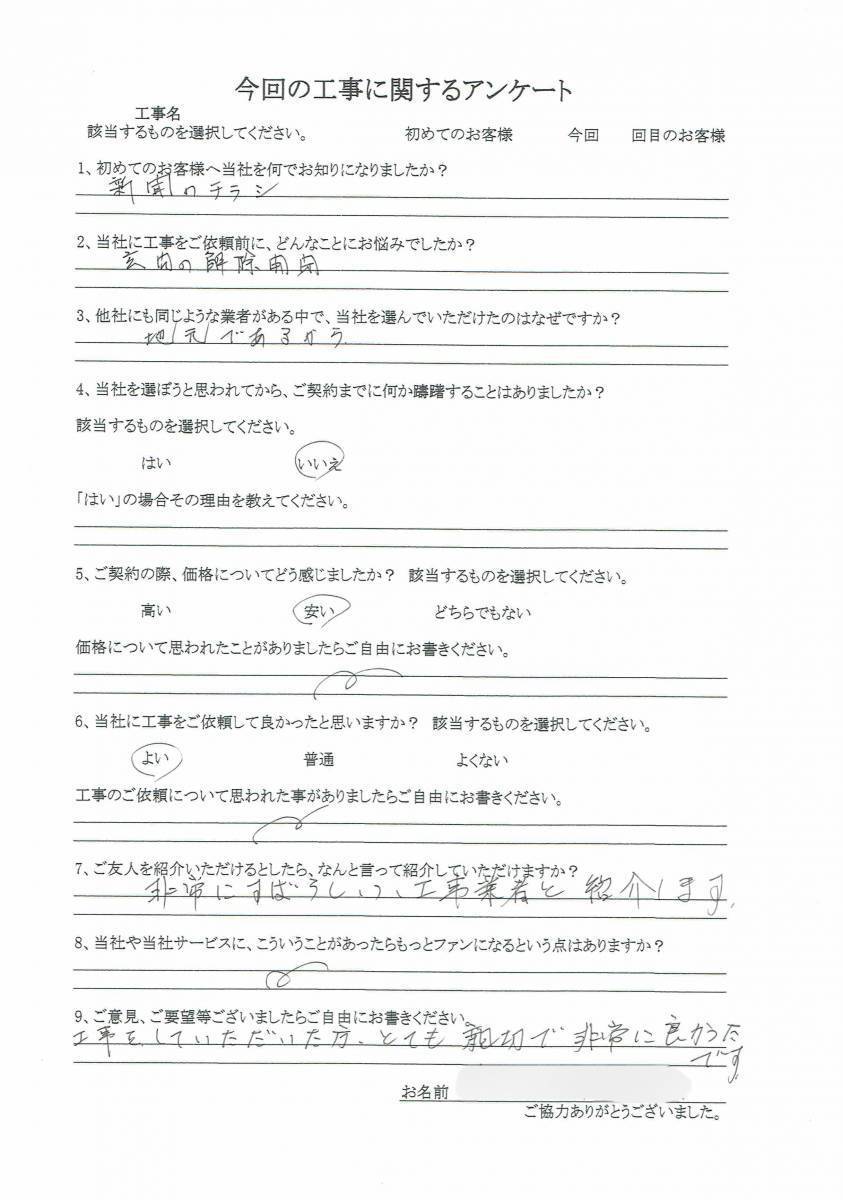 今回の工事に関するアンケート
工事名
該当するものを選択してください。 初めてのお客様 今回 回目のお客様
1、初めてのお客様へ当社を何でお知りになりましたか？
新聞のチラシ
2、当社に工事をご依頼前に、どんなことにお悩みでしたか？
玄関の解除開閉
3、他社にも同じような業者がある中で、当社を選んでいただけたのはなぜですか？
地元であるから
4、当社を選ぼうと思われてから、ご契約までに何か躊躇することはありましたか？
該当するものを選択してください。
はい いいえ
「はい」の場合その理由を教えてください。
5、ご契約の際、価格についてどう感じましたか？ 該当するものを選択してください。
高い 安い どちらでもない
価格について思われたことがありましたらご自由にお書きください。
6、当社に工事をご依頼して良かったと思いますか？ 該当するものを選択してください。
よい 普通 よくない
工事のご依頼について思われた事がありましたらご自由にお書きください。
7、ご友人を紹介いただけるとしたら、なんと言って紹介していただけますか？
非常にすばらしい、工事業者と紹介します。
8、当社や当社サービスに、こういうことがあったらもっとファンになるという点はありますか？
9、ご意見、ご要望等ございましたらご自由にお書きください。
工事をしていただいた方、とても親切で非常に良かった
です
お名前
ご協力ありがとうございました。